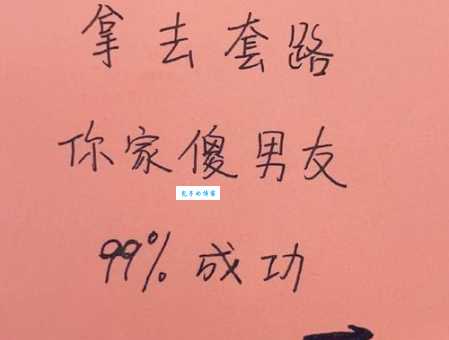 拿去套路
你家傻男友
99%成功